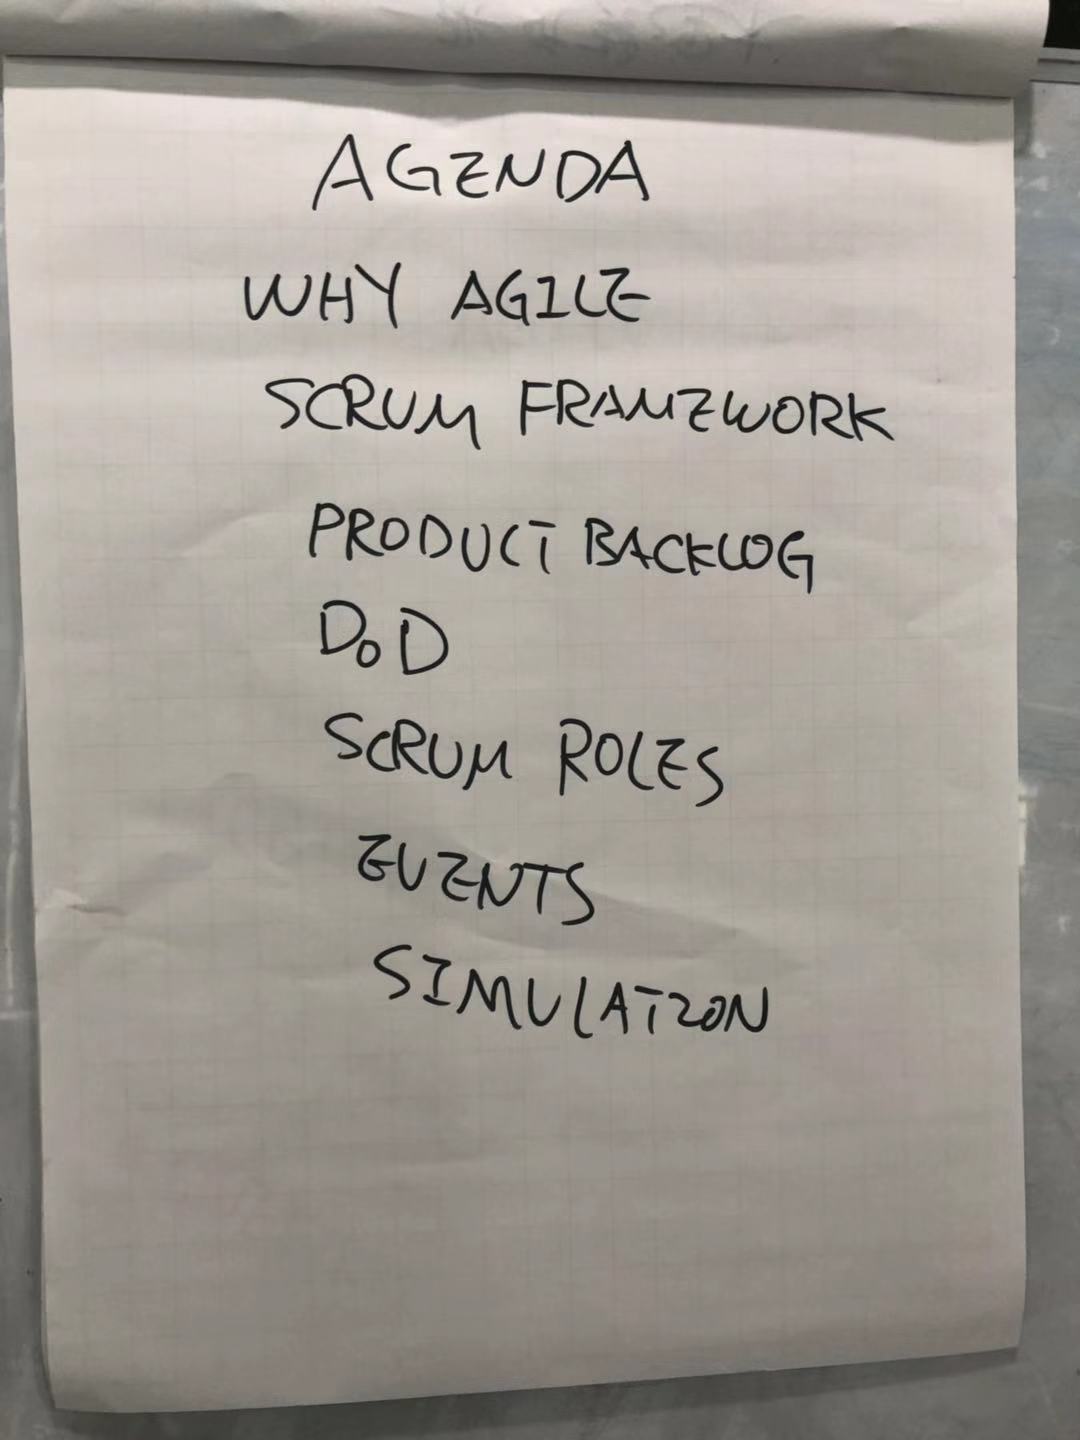 AGENDA
WHY AGILE
SCRUM FRAMEWORK
PRODUCT BACKLOG
DoD
SCRUM ROLES
EVENTS
SIMULATION